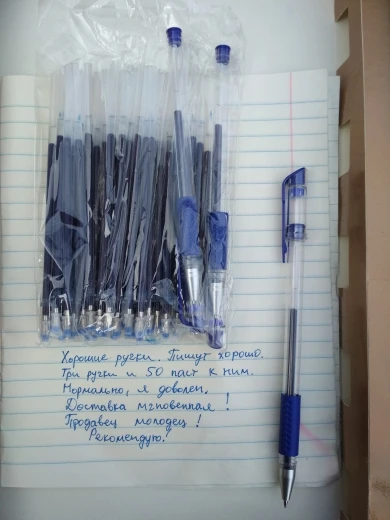 Хорошие ручки. Пишут хорошо.
Три ручки и 50 паст к ним.
Нормально, я доволен.
Доставка мгновенная!
Продавец молодец!
Рекомендую!